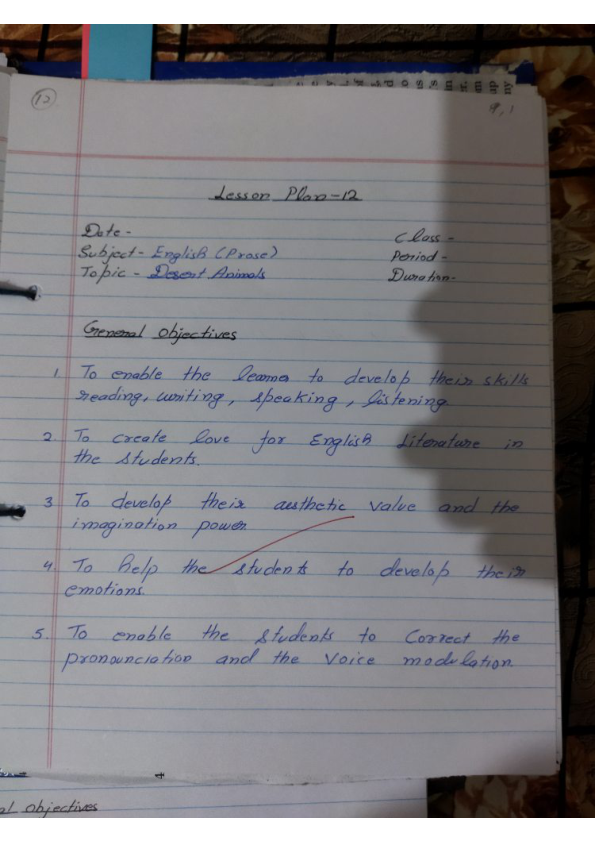 12
Lesson Plan-12
Date -
Class -
Subject - English (Prose)
Period -
Topic - Desert Animals
Duration-
General Objectives
1. To enable the learner to develop their skills
reading, writing, speaking, listening
2. To create love for English Literature in
the students.
3 To develop their austhetic value and the
imagination power.
4. To help the students to develop their
emotions.
5. To enable the students to correct the
pronounciation and the voice modulation.
4
al objectives